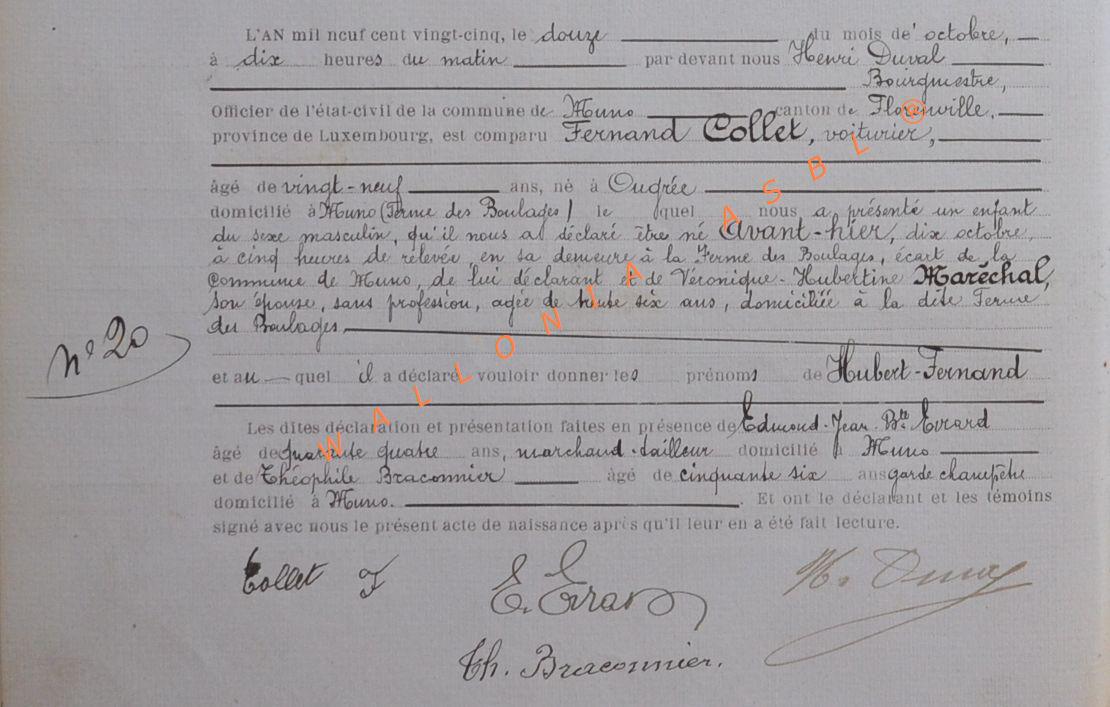 L'AN mil neuf cent vingt-cinq, le douze du mois de octobre,
à dix heures du matin par devant nous Henri Duval
Bourgmestre,
Officier de l'état-civil de la commune de Muno canton de Florenville,
province de Luxembourg, est comparu Fernand Collet, voiturier,
âgé de vingt-neuf ans, né à Ougrée
domicilié à Muno (Ferme des Boulages) le quel nous a présenté un enfant
du sexe masculin, qu'il nous a déclaré être né Avant-hier, dix octobre,
à cinq heures de relevée, en sa demeure à la Ferme des Boulages, écart de la
Commune de Muno, de lui déclarant et de Véronique-Hubertine Maréchal,
son épouse, sans profession, agée de trente six ans, domiciliée à la dite Ferme
des Boulages
Nº 20
et au quel il a déclaré vouloir donner les prénoms de Hubert-Fernand
Les dites déclaration et présentation faites en présence de Edmond-Jean-Bte Evrard
âgé de quarante quatre ans, marchand-tailleur domicilié à Muno
et de Théophile Braconnier âgé de cinquante six ans garde champêtre
domicilié à Muno. Et ont le déclarant et les témoins
signé avec nous le présent acte de naissance après qu'il leur en a été fait lecture.
Collet F
E. Evrard
H. Duval
Th. Braconnier.
WALLONIA ASBL @